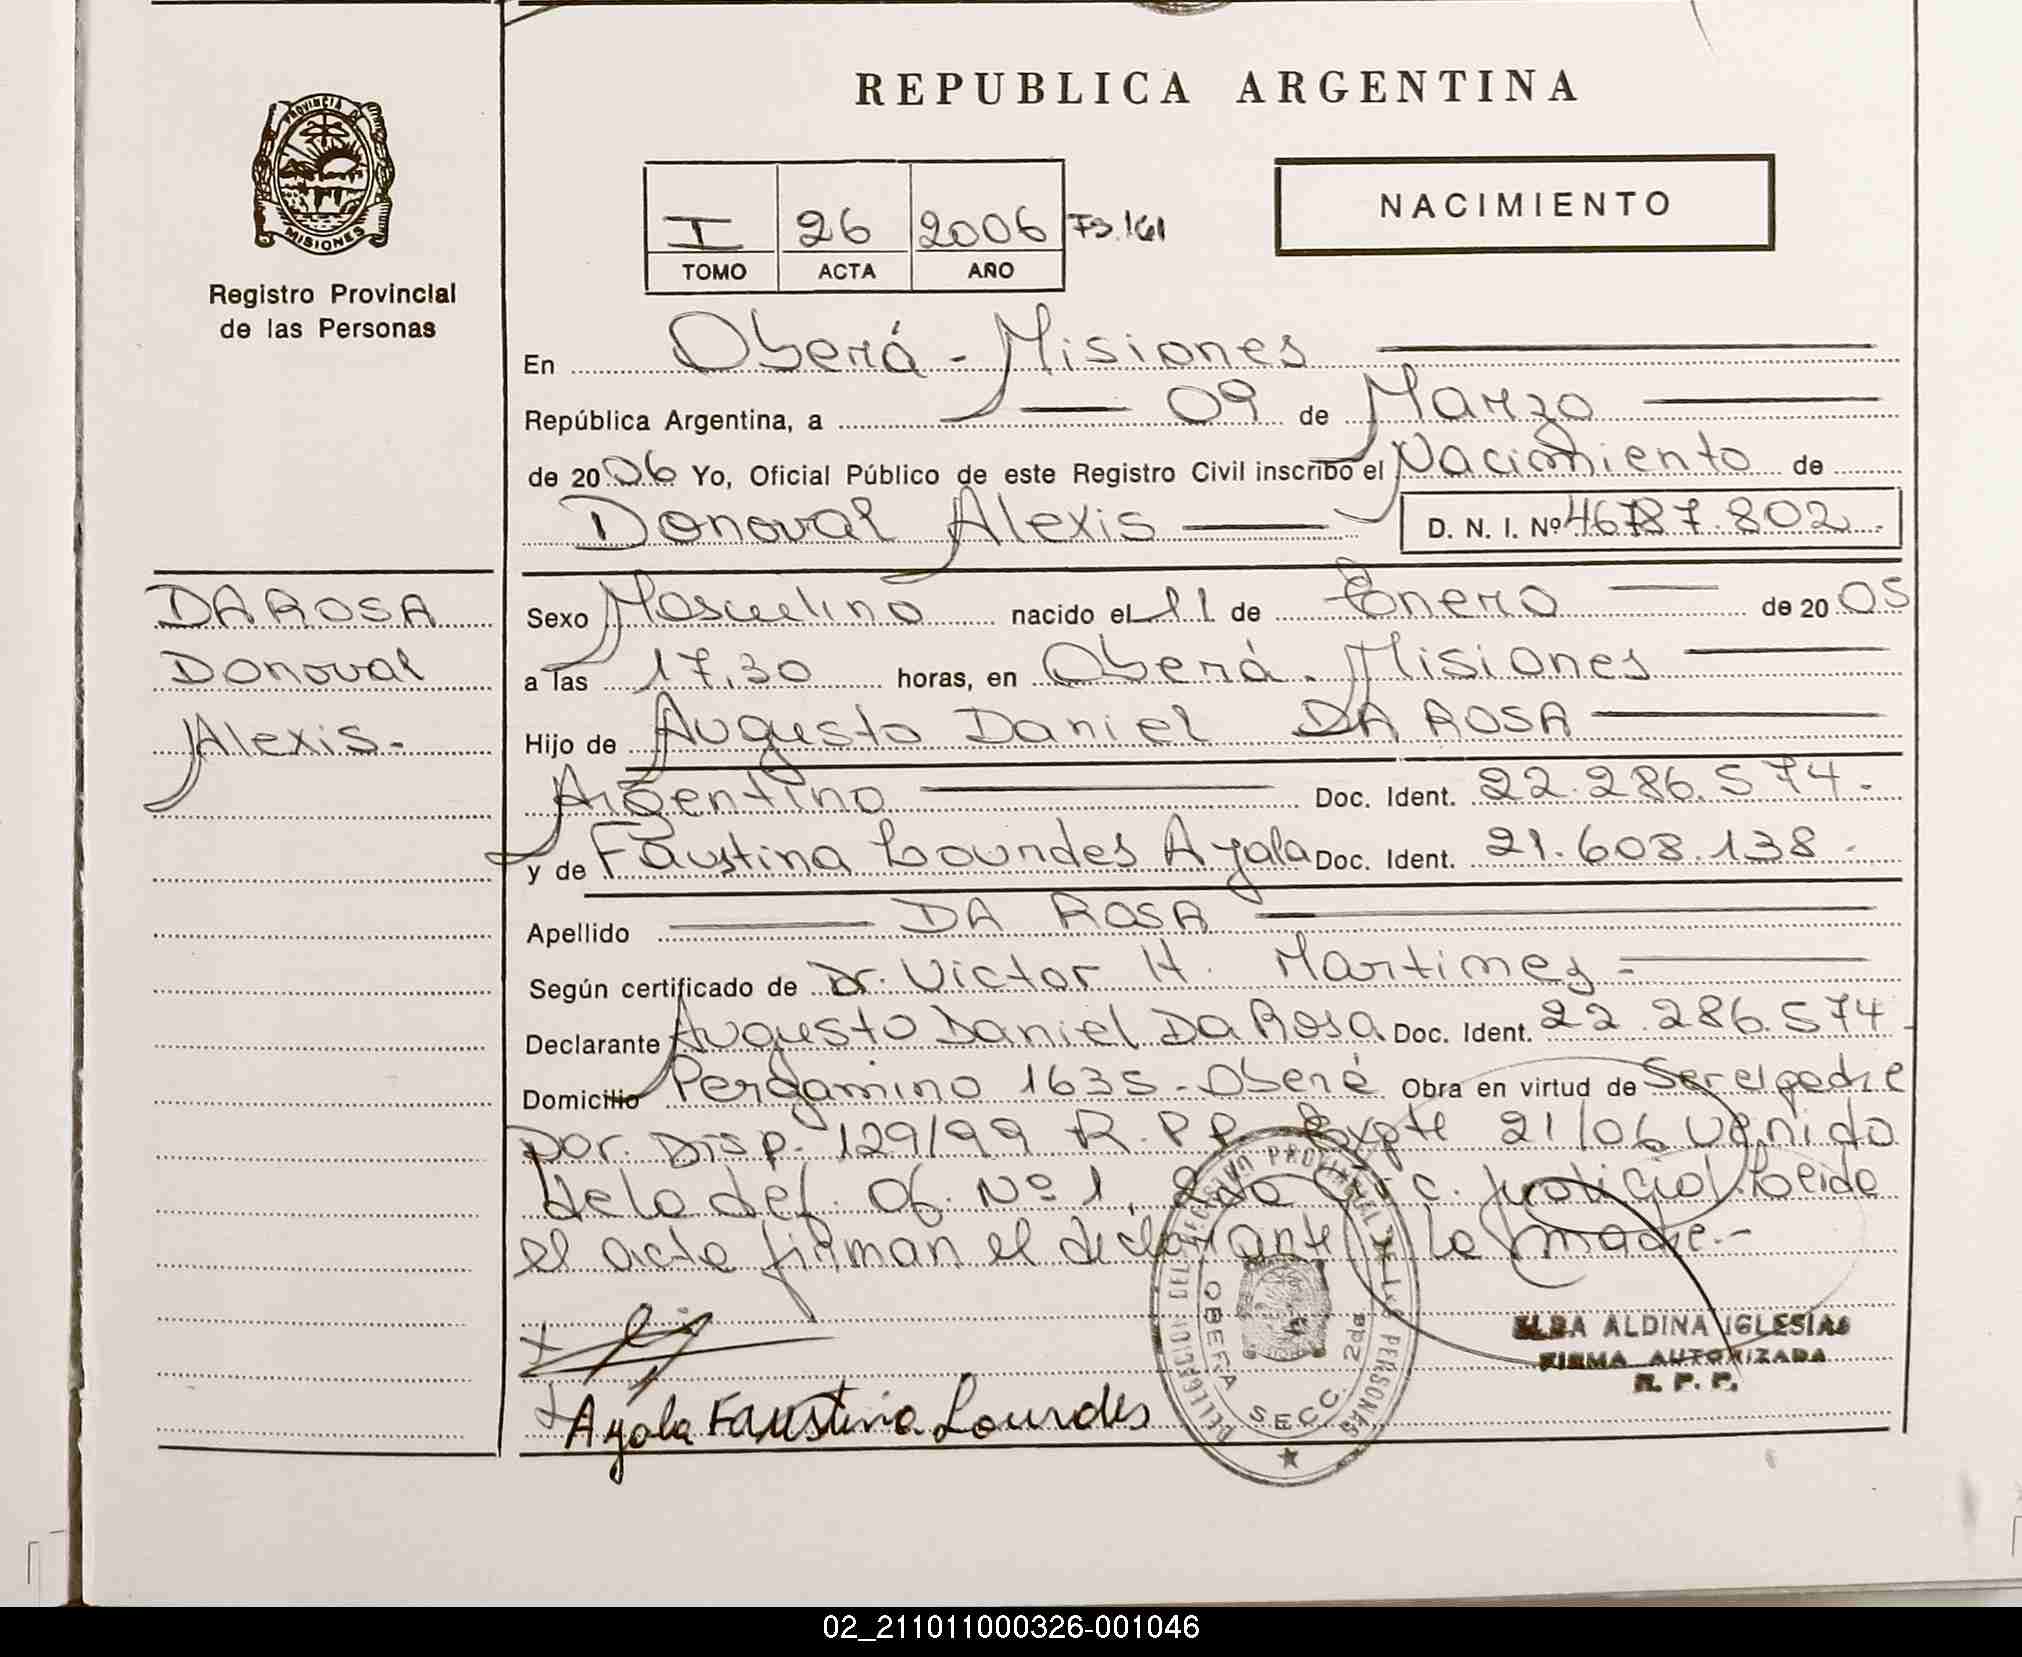 REPUBLICA ARGENTINA
PROVINCIA DE
MISIONES
Registro Provincial
de las Personas
I 26 2006 Fs. 161
TOMO ACTA AÑO
NACIMIENTO
En Oberá - Misiones
República Argentina, a 09 de Marzo
de 2006 Yo, Oficial Público de este Registro Civil inscribo el Nacimiento de
Donoval Alexis D. N. I. Nº 46787.802.
DA ROSA
Donoval
Alexis.-
Sexo Masculino nacido el 11 de Enero de 2005
a las 17,30 horas, en Oberá. Misiones
Hijo de Augusto Daniel DA ROSA
Argentino Doc. Ident. 22.286.574.
y de Faustina Lourdes Ayala Doc. Ident. 21.608.138.
Apellido DA ROSA
Según certificado de Dr. Victor H. Martinez
Declarante Augusto Daniel Da Rosa Doc. Ident. 22.286.574
Domicilio Pergamino 1635 - Oberá Obra en virtud de Ser el padre
por. Disp. 129/99 R.P.P. Expte 21/06 venido
de la def. Of. Nº 1, 2da Circ. Judicial. Leida
el acta firman el declarante y la madre.-
DELEGACION DEL REGISTRO PROVINCIAL DE LAS PERSONAS
OBERA SECC. 2da
ELBA ALDINA IGLESIAS
FIRMA AUTORIZADA
R. P. P.
Ayala Faustina Lourdes
02_211011000326-001046